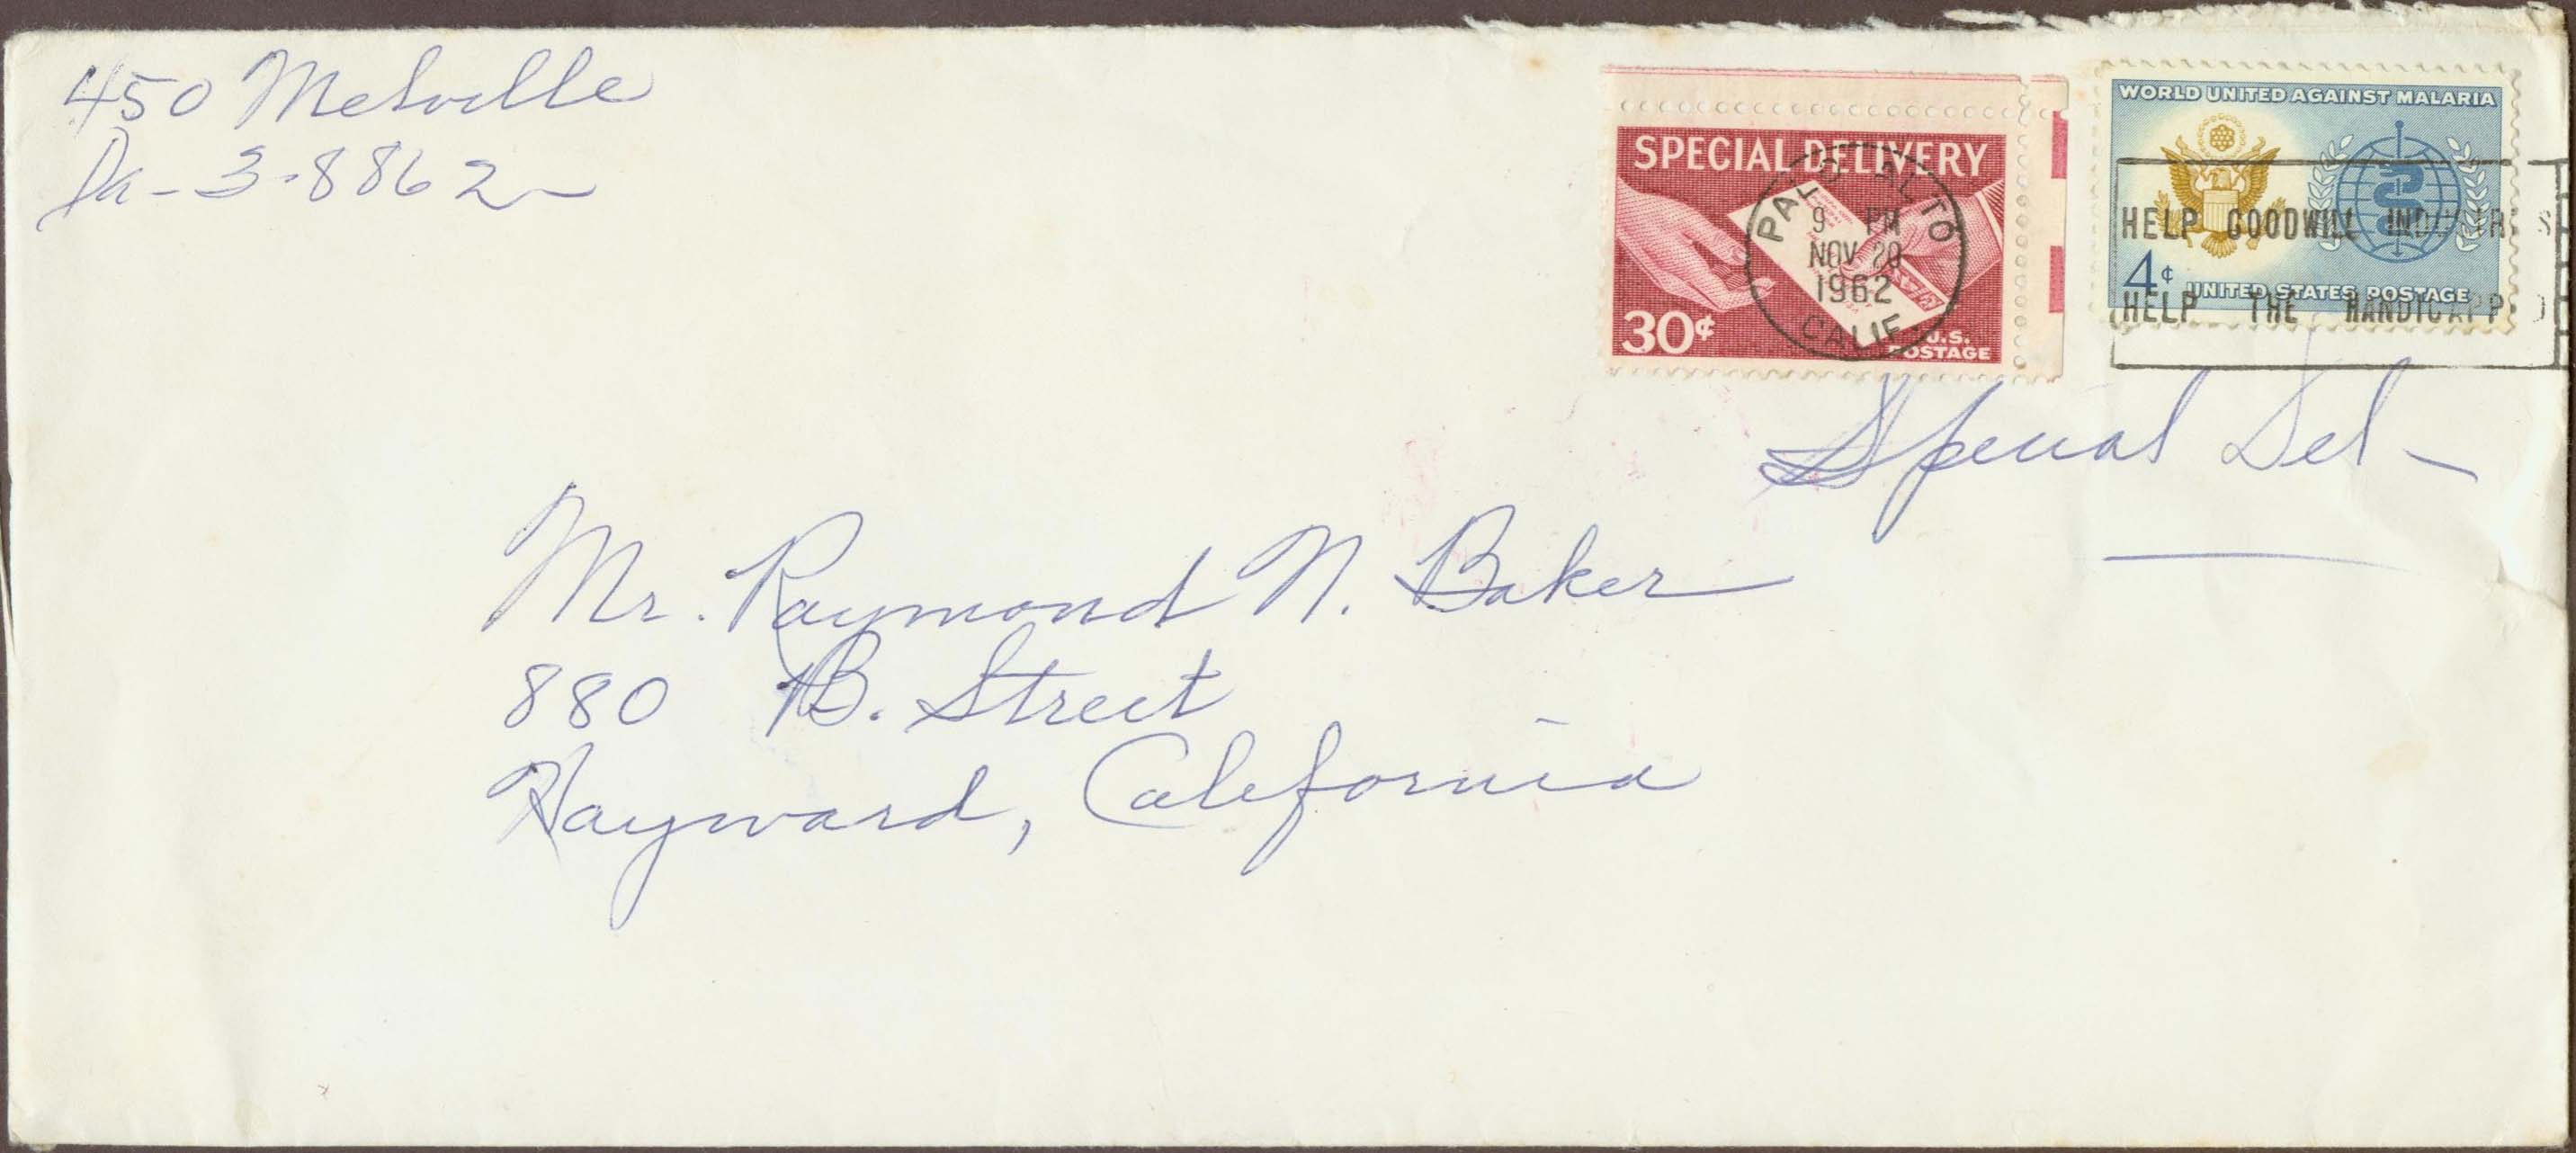 450 Melville
Da-3-8862
SPECIAL DELIVERY
30¢
U.S.
POSTAGE
PALO ALTO
9 PM
NOV 20
1962
CALIF
WORLD UNITED AGAINST MALARIA
4¢
UNITED STATES POSTAGE
HELP GOODWILL INDUSTRIES
HELP THE HANDICAPPED
Special Del-
Mr. Raymond N. Baker
880 B. Street
Hayward, California